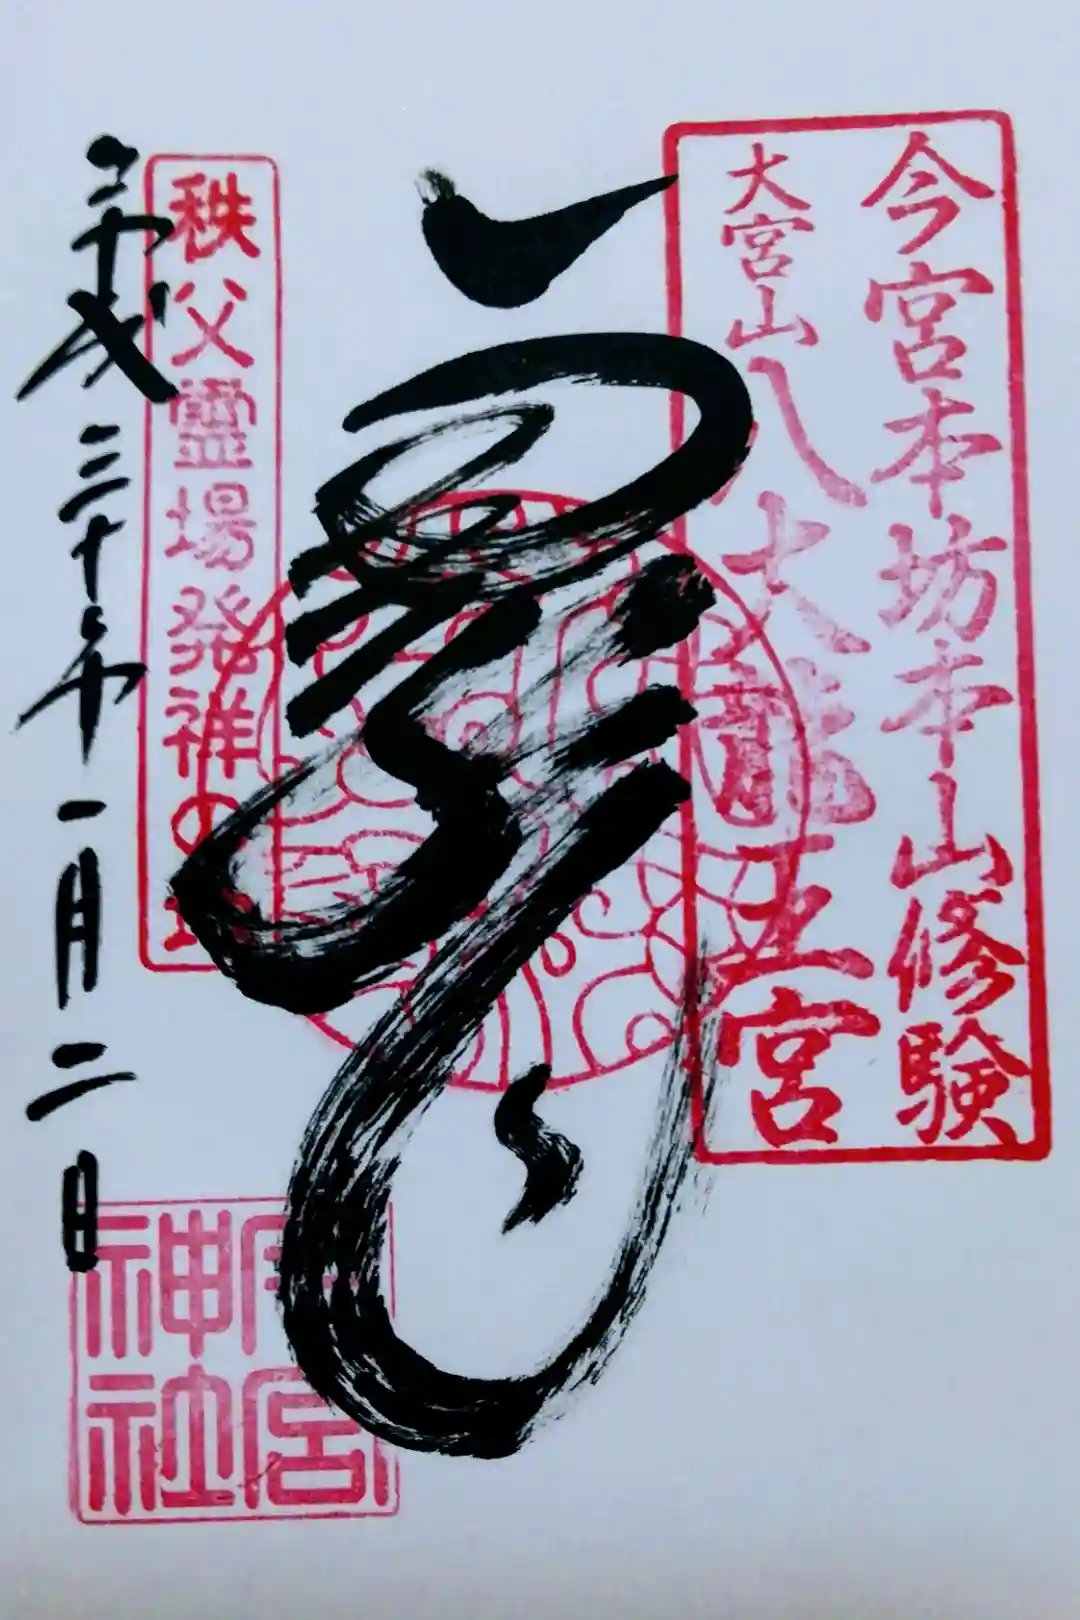 今宮本坊本山修験
大宮山八大龍王宮
龍
秩父霊場発祥の地
平成三十年一月二日
今宮神社